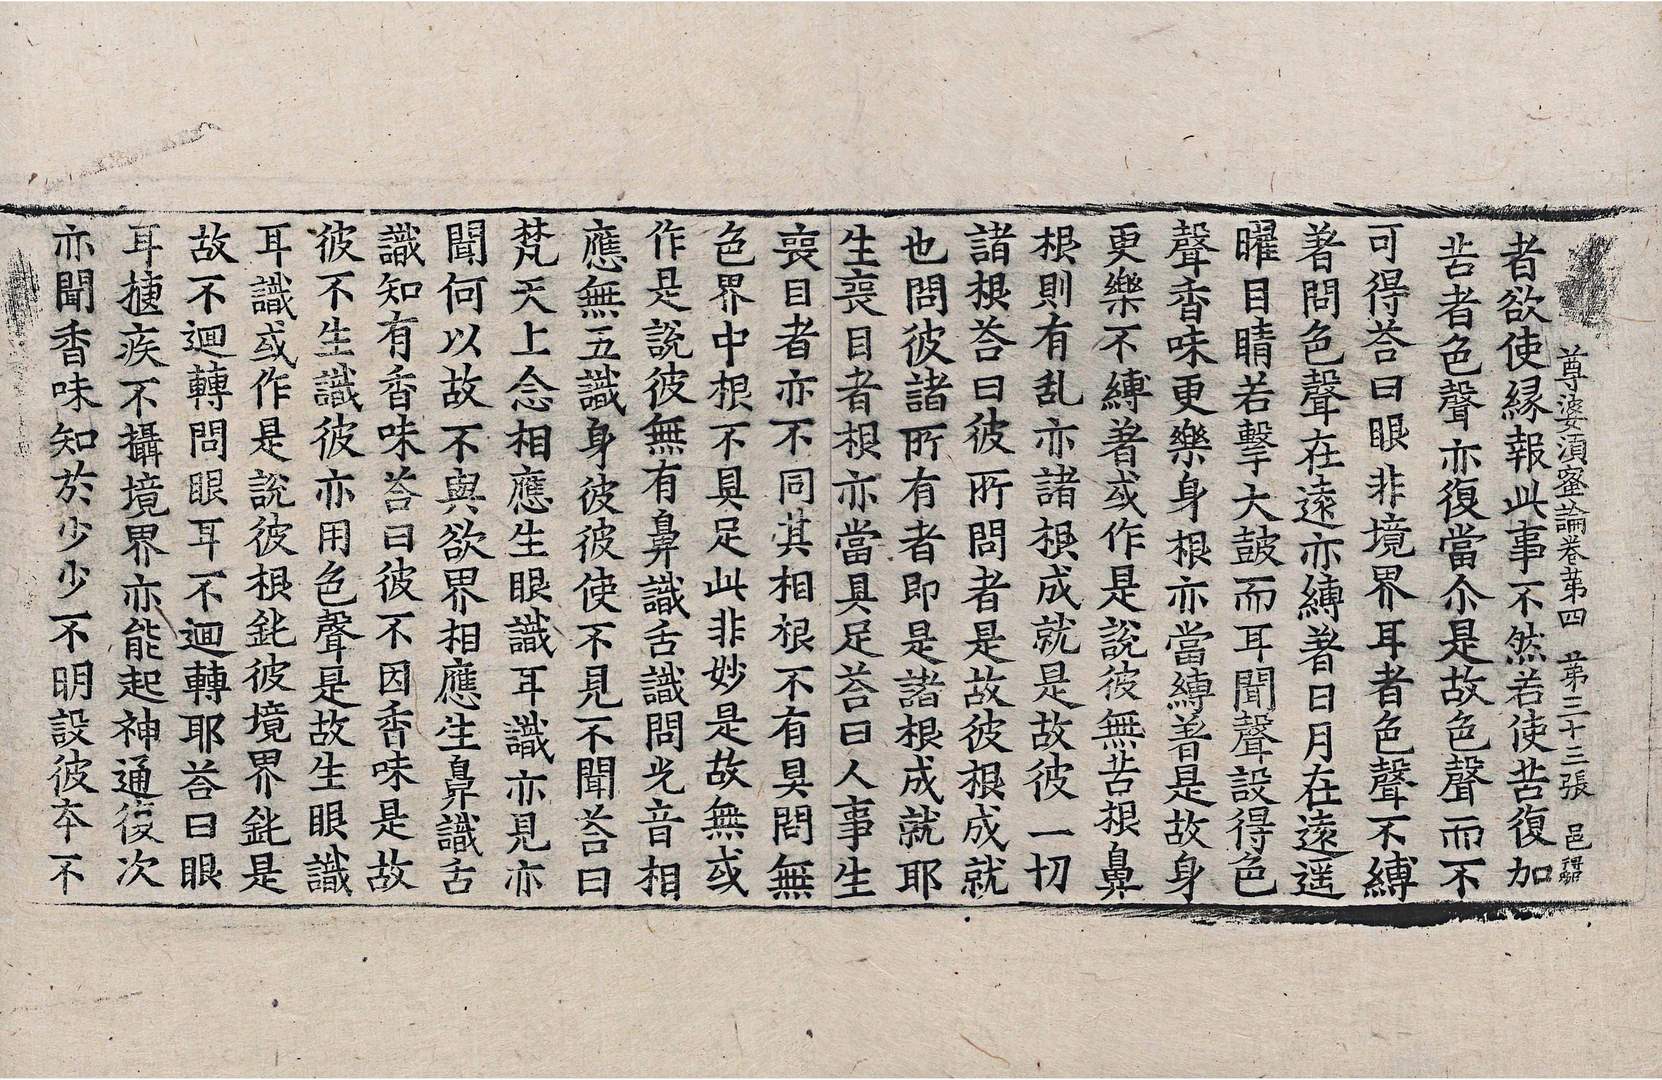 尊婆湏蜜論卷苐四　苐三十三張　邑
者欲使縁報此事不然若使苦復加
苦者色聲亦復當尒是故色聲而不
可得荅曰眼非境界耳者色聲不縛
著問色聲在遠亦縛著日月在遠遥
曜目睛若擊大鼓而耳聞聲設得色
聲香味更樂身根亦當縛著是故身
更樂不縛著或作是說彼無苦根鼻
根則有乱亦諸根成就是故彼一切
諸根荅曰彼所問者是故彼根成就
也問彼諸所有者即是諸根成就耶
生喪目者根亦當具足荅曰人事生
喪目者亦不同其相根不有具問無
色界中根不具足此非妙是故無或
作是說彼無有鼻識舌識問光音相
應無五識身彼彼使不見不聞荅曰
梵天上念相應生眼識耳識亦見亦
聞何以故不與欲界相應生鼻識舌
識知有香味荅曰彼不因香味是故
彼不生識彼亦用色聲是故生眼識
耳識或作是說彼根鈍彼境界鈍是
故不迴轉問眼耳不迴轉耶荅曰眼
耳揵疾不攝境界亦能起神通復次
亦聞香味知於少少不明設彼夲不